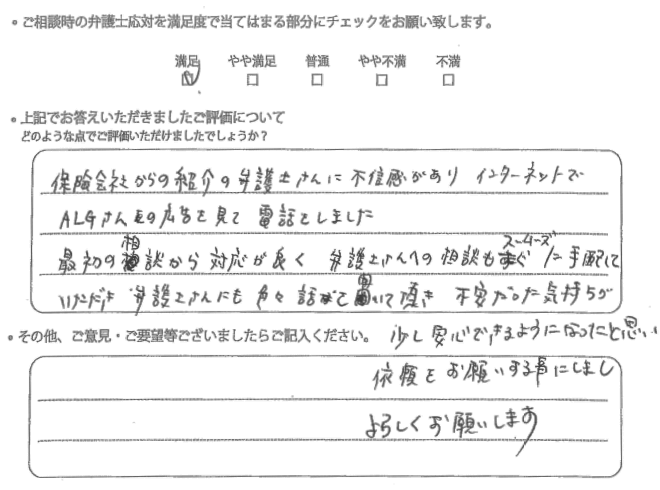 • ご相談時の弁護士応対を満足度で当てはまる部分にチェックをお願い致します。
満足 やや満足 普通 やや不満 不満
• 上記でお答えいただきましたご評価について
どのような点でご評価いただけましたでしょうか？
保険会社からの紹介の弁護士さんに 不信感があり インターネットで
ALGさんの広告を見て 電話をしました
最初の相談から 対応が良く 弁護士さんへの相談もスムーズに手配して
いただき 弁護士さんにも色々話を聞いて頂き 不安だった気持ちが
• その他、ご意見・ご要望等ございましたらご記入ください。 少し安心できるようになったと思い
依頼をお願いする事にしまし
よろしくお願いします